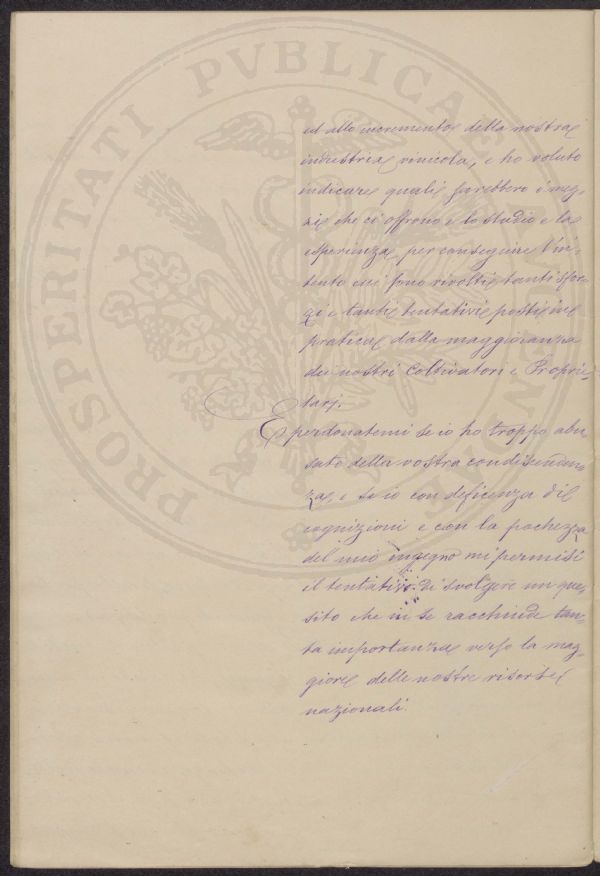 ed allo incremento della nostra
industria vinicola, e ho voluto
indicare quali sarebbero i mez,
zi che ci offrono e lo studio e la
esperienza per conseguire l'in,
tento cui sono rivolti tanti sfor,
zi e tanti tentativi posti in
pratica dalla maggioranza
dei nostri Coltivatori e Proprie,
tarj.
E perdonatemi se io ho troppo abu,
sato della vostra condiscenden,
za e se io con deficenza di
cognizioni e con la pochezza
del mio ingegno mi permisi
il tentativo di svolgere un que,
sito che in se racchiude tan,
ta importanza verso la mag,
giore delle nostre risorse
nazionali.
PROSPERITATI PVBLICAE AVGENDAE